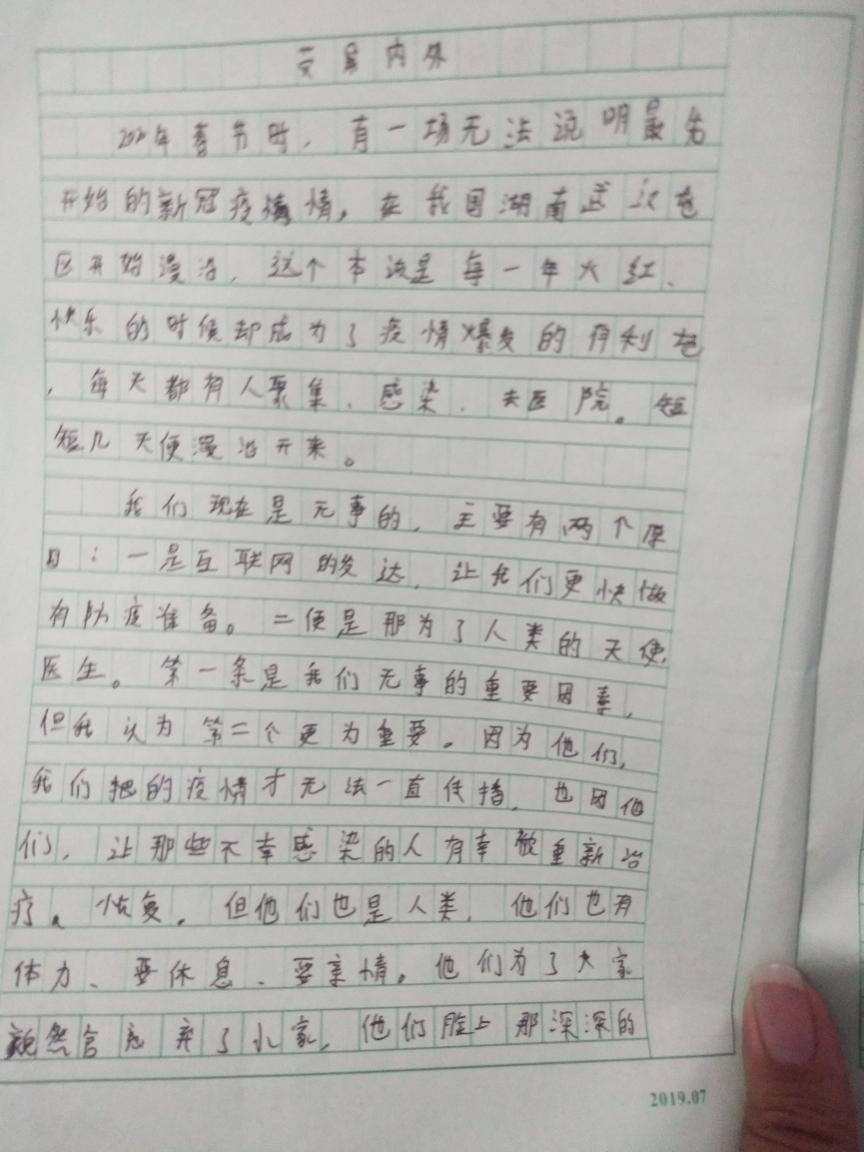 内外
2020年春节时，有一场无法说明最先
开始的新冠疫情，在我国湖南武汉地
区开始漫沿，这个本该是每一年火红、
快乐的时候却成为了疫情爆发的有利地
，每天都有人聚集、感染、去医院。短
短几天便漫沿开来。
我们现在是无事的，主要有两个原
因：一是互联网的发达，让我们更快做
有防疫准备。二便是那为了人类的天使
医生。第一条是我们无事的重要因素，
但我认为第二个更为重要。因为他们，
我们把的疫情才无法一直传播，也因他
们，让那些不幸感染的人有幸被重新治
疗、恢复。但他们也是人类，他们也有
体力、要休息、要亲情。他们为了大家
毅然舍弃了小家，他们脸上那深深的
2019.07